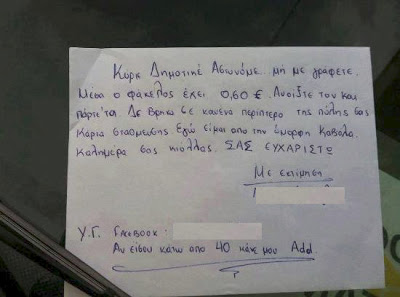 Κύριε Δημοτικέ Αστυνόμε. μή με γράφετε.
Μέσα ο φάκελος έχει 0,60 €. Ανοίξτε τον και
πάρτε τα. Δε βρήκα σε κανένα περίπτερο της πόλης σας
Κάρτα στάθμευσης. Εγώ είμαι από την όμορφη Καβάλα.
Καλημέρα σας κιόλλας. ΣΑΣ ΕΥΧΑΡΙΣΤΩ
Με εκτίμηση
Υ.Γ. FACEBOOK :
Αν είσαι κάτω από 40 κάνε μου Add